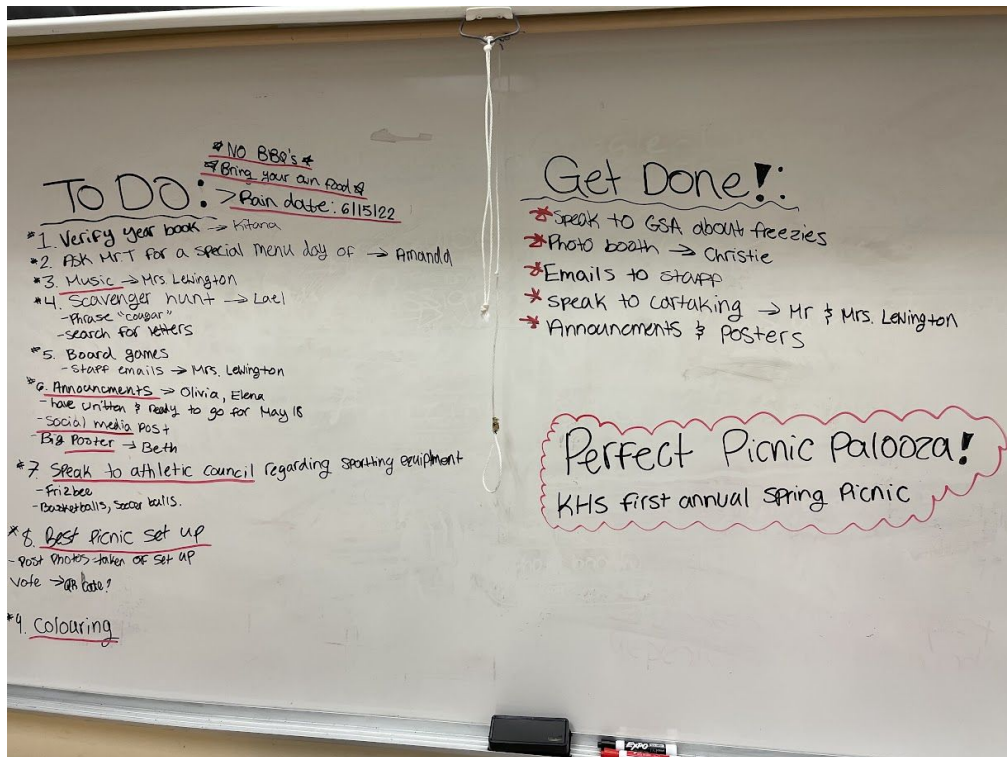 *NO BBQ's*
*Bring your own food*
To DO:
>Rain date: 6/15/22
*1. Verify year book → Kitana
*2. ASK Mr.T for a special menu day of → Amanda
*3. Music → Mrs. Lewington
*4. Scavenger hunt → Lael
-Phrase "cougar"
-search for letters
*5. Board games
- Staff emails → Mrs. Lewington
*6. Announcments → Olivia, Elena
-have written & ready to go for May 18
-Social media post
-Big Poster → Beth
*7. Speak to athletic council regarding sporting equiptment
-Frizbee
-Basketballs, Soccer balls.
*8. Best Picnic set up
-Post Photos-taken of set up
Vote → QR Code?
*9. Colouring
Get Done!:
*Speak to GSA about freezies
*Photo booth → Christie
*Emails to staff
*Speak to cartaking → Mr & Mrs. Lewington
*Announcements & Posters
Perfect Picnic Palooza!
KHS first annual Spring Picnic
EXPO